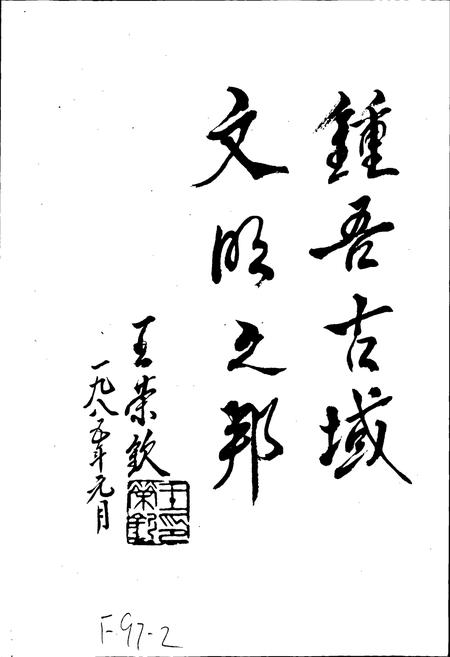 鍾吾古域
文明之邦
王荣钦
一九八五年元月
王荣钦印
F.97-2